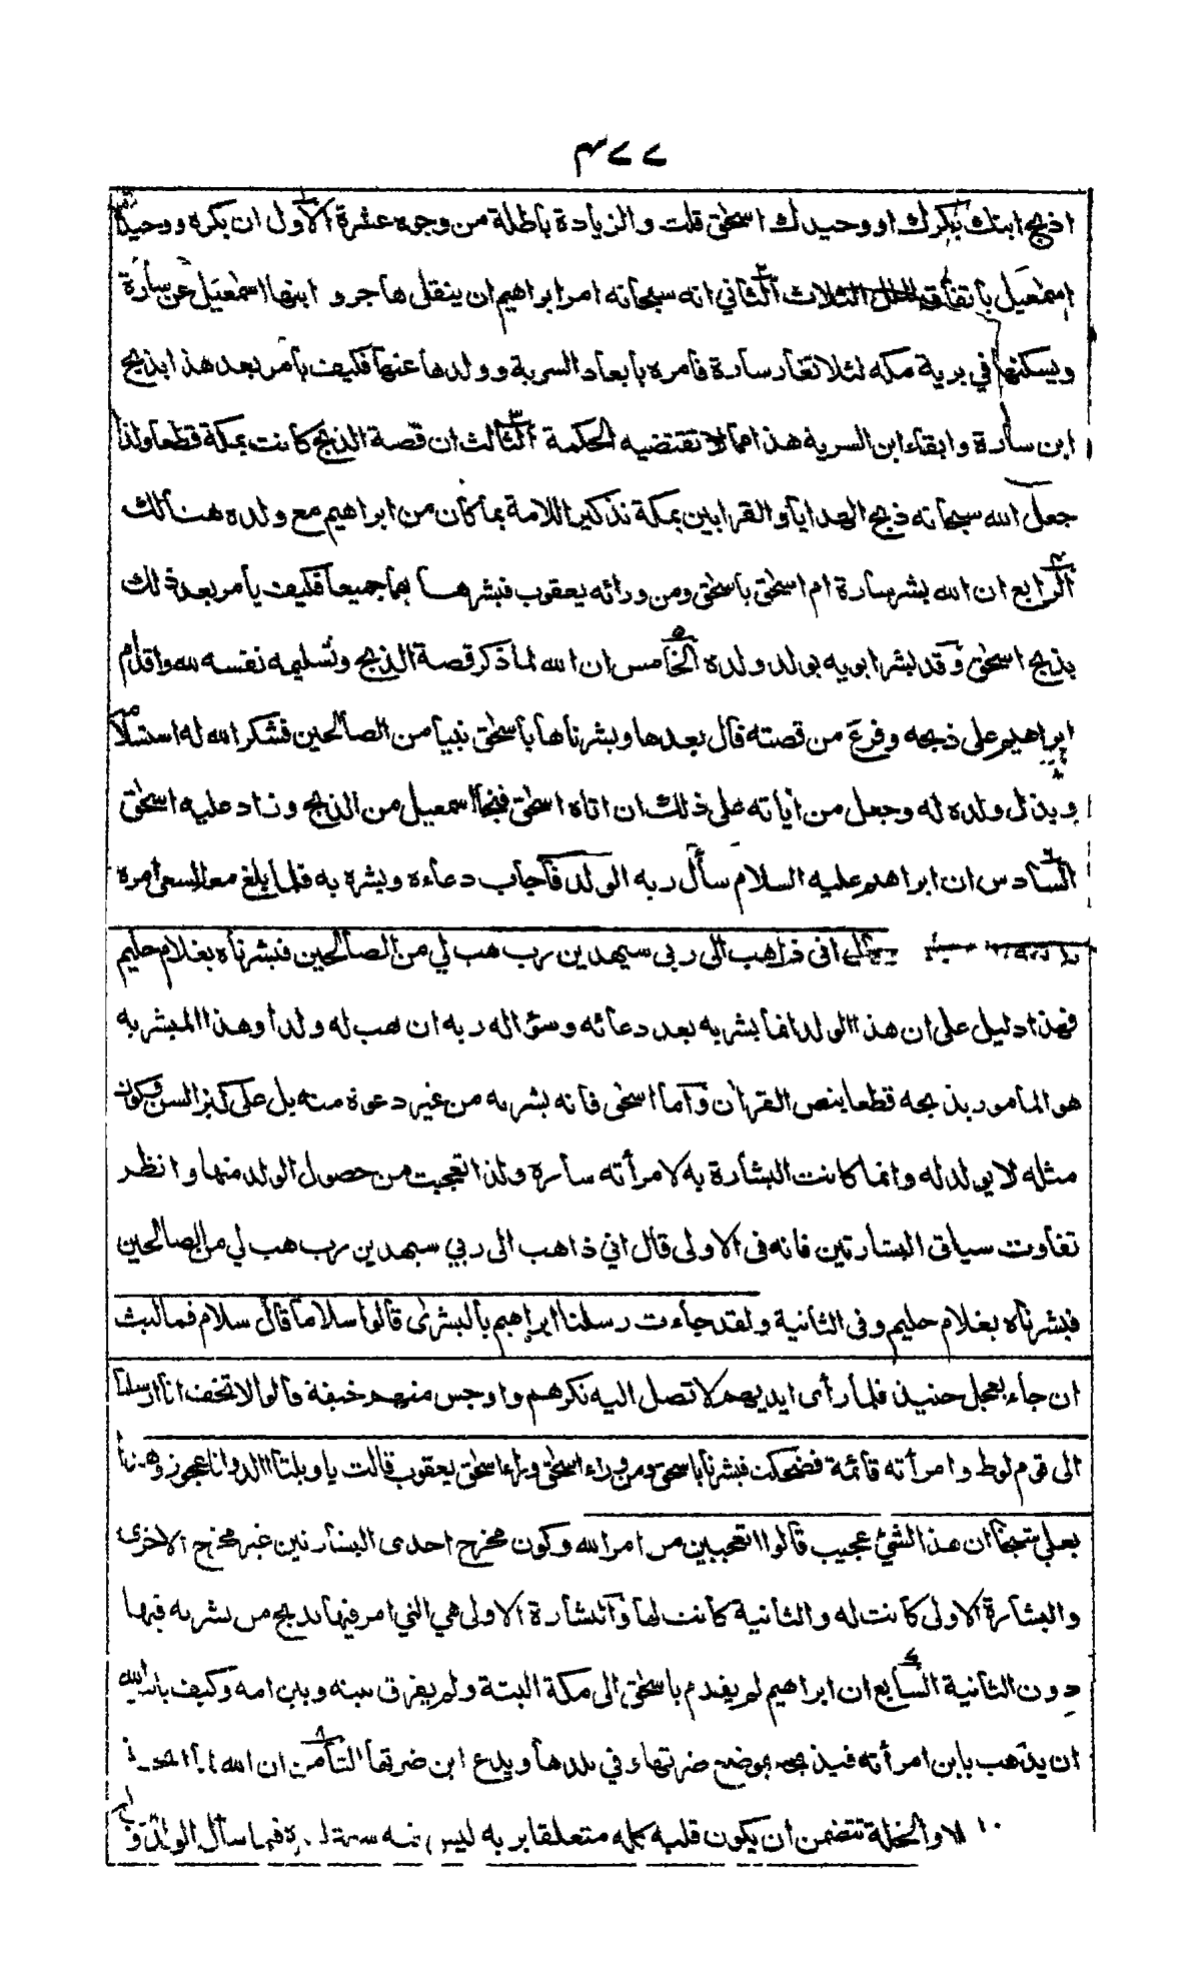 ٤٧٧
اذبح ابنك بكرك او وحيدك اسحٰق قلت والزيادة باطلة من وجوه عشرة الاول ان بكره ووحيده
اسمٰعيل باتفاق الملل الثلاث الثاني انه سبحانه امر ابراهيم ان ينقل هاجر و ابنها اسمٰعيل عن سارة
ويسكنها في برية مكه لئلا تغار سارة فأمره بابعاد السرية وولدها عنها فكيف يأمر بعد هذا بذبح
ابن سارة وابقاء ابن السرية هذا مما لا تقتضيه الحكمة الثالث ان قصة الذبح كانت بمكة قطعا ولذا
جعل الله سبحانه ذبح الهدايا والقرابين بمكة تذكيرا للامة بما كان من ابراهيم مع ولده هنالك
الرابع ان الله بشر سارة ام اسحٰق باسحٰق ومن ورائه يعقوب فبشرها بهما جميعا فكيف يأمر بعد ذلك
بذبح اسحٰق وقد بشر ابويه بولد ولده الخامس ان الله لما ذكر قصة الذبح وتسليمه نفسه لله واقدام
ابراهيم على ذبحه وفرغ من قصته قال بعدها وبشرناه باسحٰق نبيا من الصالحين فشكر الله له استسلامه
وبذل ولده له وجعل من أياته على ذلك ان اتاه اسحٰق فنجا اسمعيل من الذبح وزاد عليه اسحٰق
السادس ان ابراهيم عليه السلام سأل ربه الولد فأجاب دعاءه وبشره به فلما بلغ معه السعي امره
اني ذاهب الى ربي سيهدين رب هب لي من الصالحين فبشرناه بغلام حليم
فهذا دليل على ان هذا الولد انما بشر به بعد دعائه وسؤاله ربه ان يهب له ولدا وهذا المبشر به
هو المأمور بذبحه قطعا بنص القرأن وأما اسحٰق فانه بشر به من غير دعوة منه بل على كبر السن وكون
مثله لا يولد له وانما كانت البشارة به لامرأته سارة ولذا تعجبت من حصول الولد منها وانظر
تفاوت سياق البشارتين فانه في الاولى قال اني ذاهب الى ربي سيهدين رب هب لي من الصالحين
فبشرناه بغلام حليم وفي الثانية ولقد جاءت رسلنا ابراهيم بالبشرى قالوا سلاما قال سلام فما لبث
ان جاء بعجل حنيذ فلما رأى ايديهم لا تصل اليه نكرهم واوجس منهم خيفة قالوا لا تخف انا ارسلنا
الى قوم لوط وامرأته قائمة فضحكت فبشرناها باسحٰق ومن وراء اسحٰق وراء اسحٰق يعقوب قالت يا ويلتا أالد وانا عجوز وهذا
بعلي شيخا ان هذا لشئ عجيب قالوا اتعجبين من امر الله وكون مخرج احدى البشارتين غير مخرج الاخرى
والبشارة الاولى كانت له والثانية كانت لها والبشارة الاولى هي التي امر فيها بذبح من بشر به فيها
دون الثانية السابع ان ابراهيم لم يقدم باسحٰق الى مكة البتة ولم يفرق بينه وبين امه وكيف يأمره الله
ان يذهب بابن امرأته فيذبحه بموضع ضرتها وفي بلدها ويدع ابن ضرتها الثامن ان الله لما اتخذ
والخلة تتضمن ان يكون قلبه كله متعلقا بربه ليس فيه سعة فلما سأل الولد و